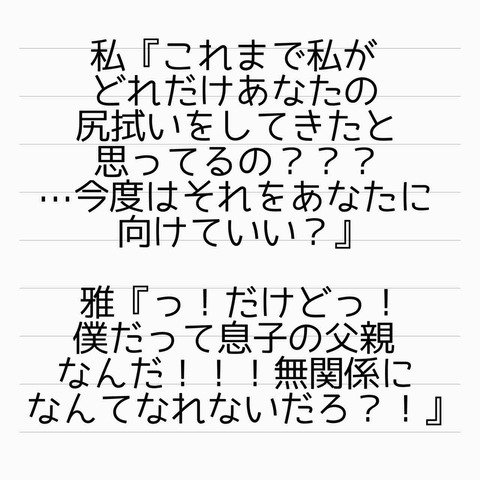 私『これまで私が
どれだけあなたの
尻拭いをしてきたと
思ってるの？？？
…今度はそれをあなたに
向けていい？』
雅『っ！だけどっ！
僕だって息子の父親
なんだ！！！無関係に
なんてなれないだろ？！』